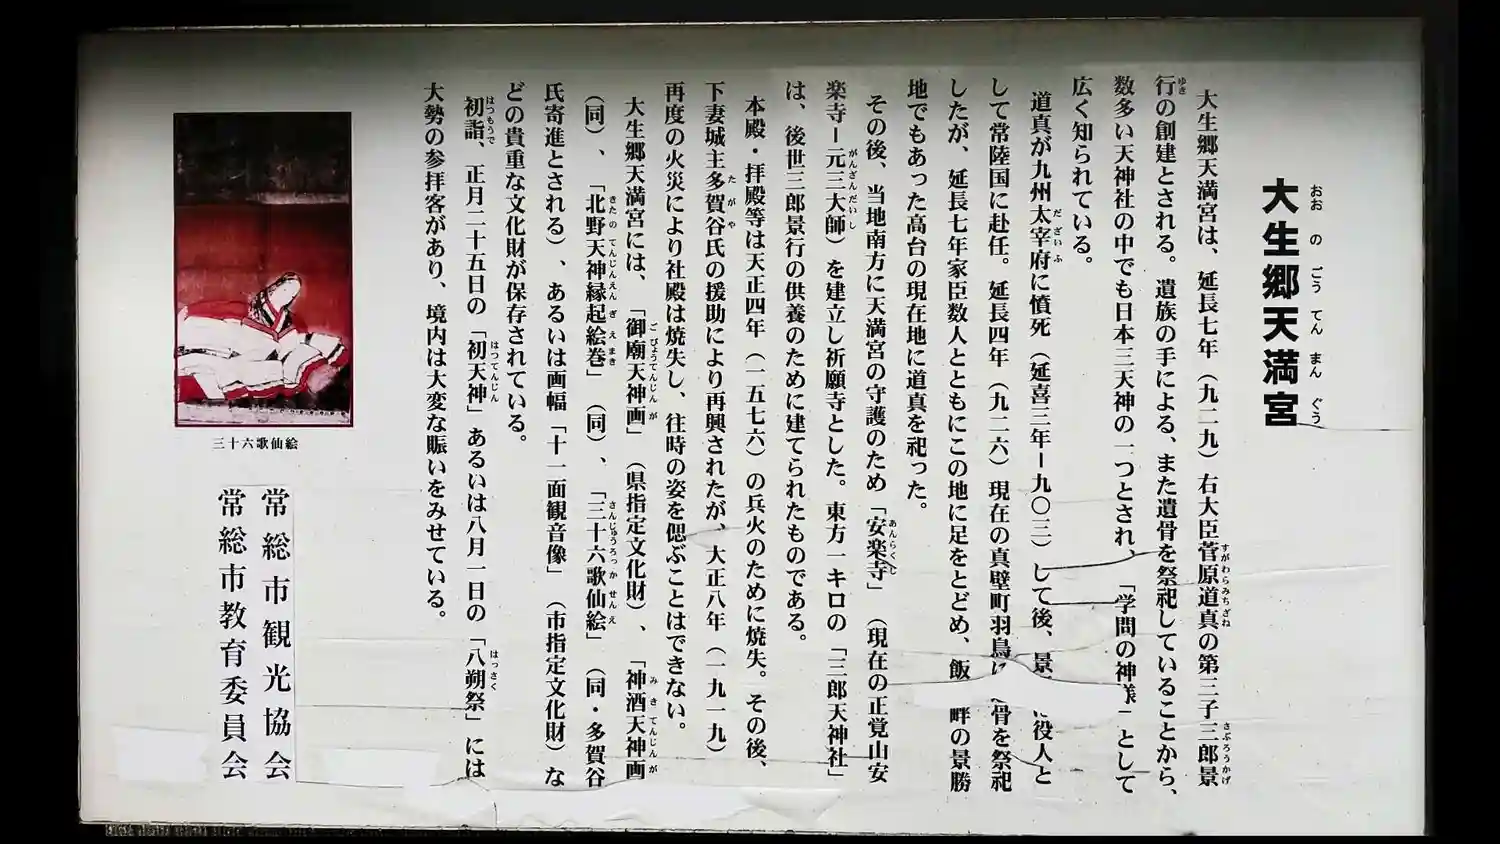 大生郷天満宮
おおのごうてんまんぐう
大生郷天満宮は、延長七年（九二九）右大臣菅原道真の第三子三郎景
行の創建とされる。遺族の手による、また遺骨を祭祀していることから、
数多い天神社の中でも日本三天神の一つとされ、「学問の神様」として
広く知られている。
道真が九州太宰府に憤死（延喜三年ー九〇三）して後、景 役人と
して常陸国に赴任。延長四年（九二六）現在の真壁町羽鳥に 骨を祭祀
したが、延長七年家臣数人とともにこの地に足をとどめ、飯 畔の景勝
地でもあった高台の現在地に道真を祀った。
その後、当地南方に天満宮の守護のため「安楽寺」（現在の正覚山安
楽寺ー元三大師）を建立し祈願寺とした。東方一キロの「三郎天神社」
は、後世三郎景行の供養のために建てられたものである。
本殿・拝殿等は天正四年（一五七六）の兵火のために焼失。その後、
下妻城主多賀谷氏の援助により再興されたが、大正八年（一九一九）
再度の火災により社殿は焼失し、往時の姿を偲ぶことはできない。
大生郷天満宮には、「御廟天神画」（県指定文化財）、「神酒天神画
（同）、「北野天神縁起絵巻」（同）、「三十六歌仙絵」（同・多賀谷
氏寄進とされる）、あるいは画幅「十一面観音像」（市指定文化財）な
どの貴重な文化財が保存されている。
初詣、正月二十五日の「初天神」あるいは八月一日の「八朔祭」には
大勢の参拝客があり、境内は大変な賑いをみせている。
三十六歌仙絵
常総市観光協会
常総市教育委員会